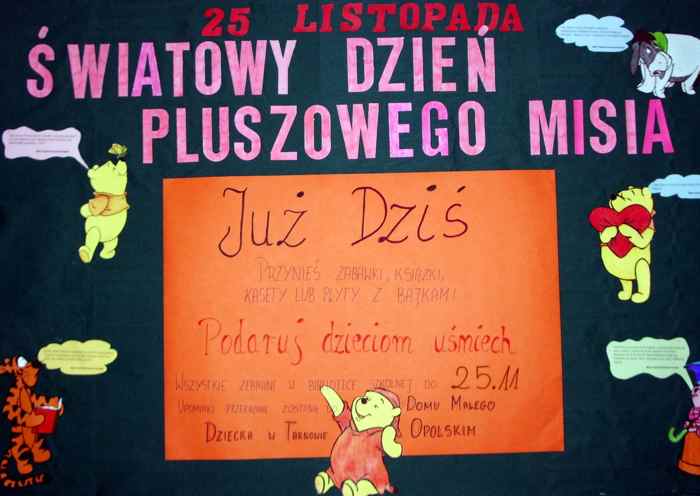 25 LISTOPADA
ŚWIATOWY DZIEŃ
PLUSZOWEGO MISIA
Już Dziś
PRZYNIEŚ ZABAWKI, KSIĄŻKI,
KASETY LUB PŁYTY Z BAJKAMI
Podaruj dzieciom uśmiech
WSZYSTKIE ZEBRANE W BIBLIOTECE SZKOLNEJ DO 25.11
UPOMINKI PRZEKAZANE ZOSTANĄ DOMU MAŁEGO
DZIECKA W TARNOWIE OPOLSKIM